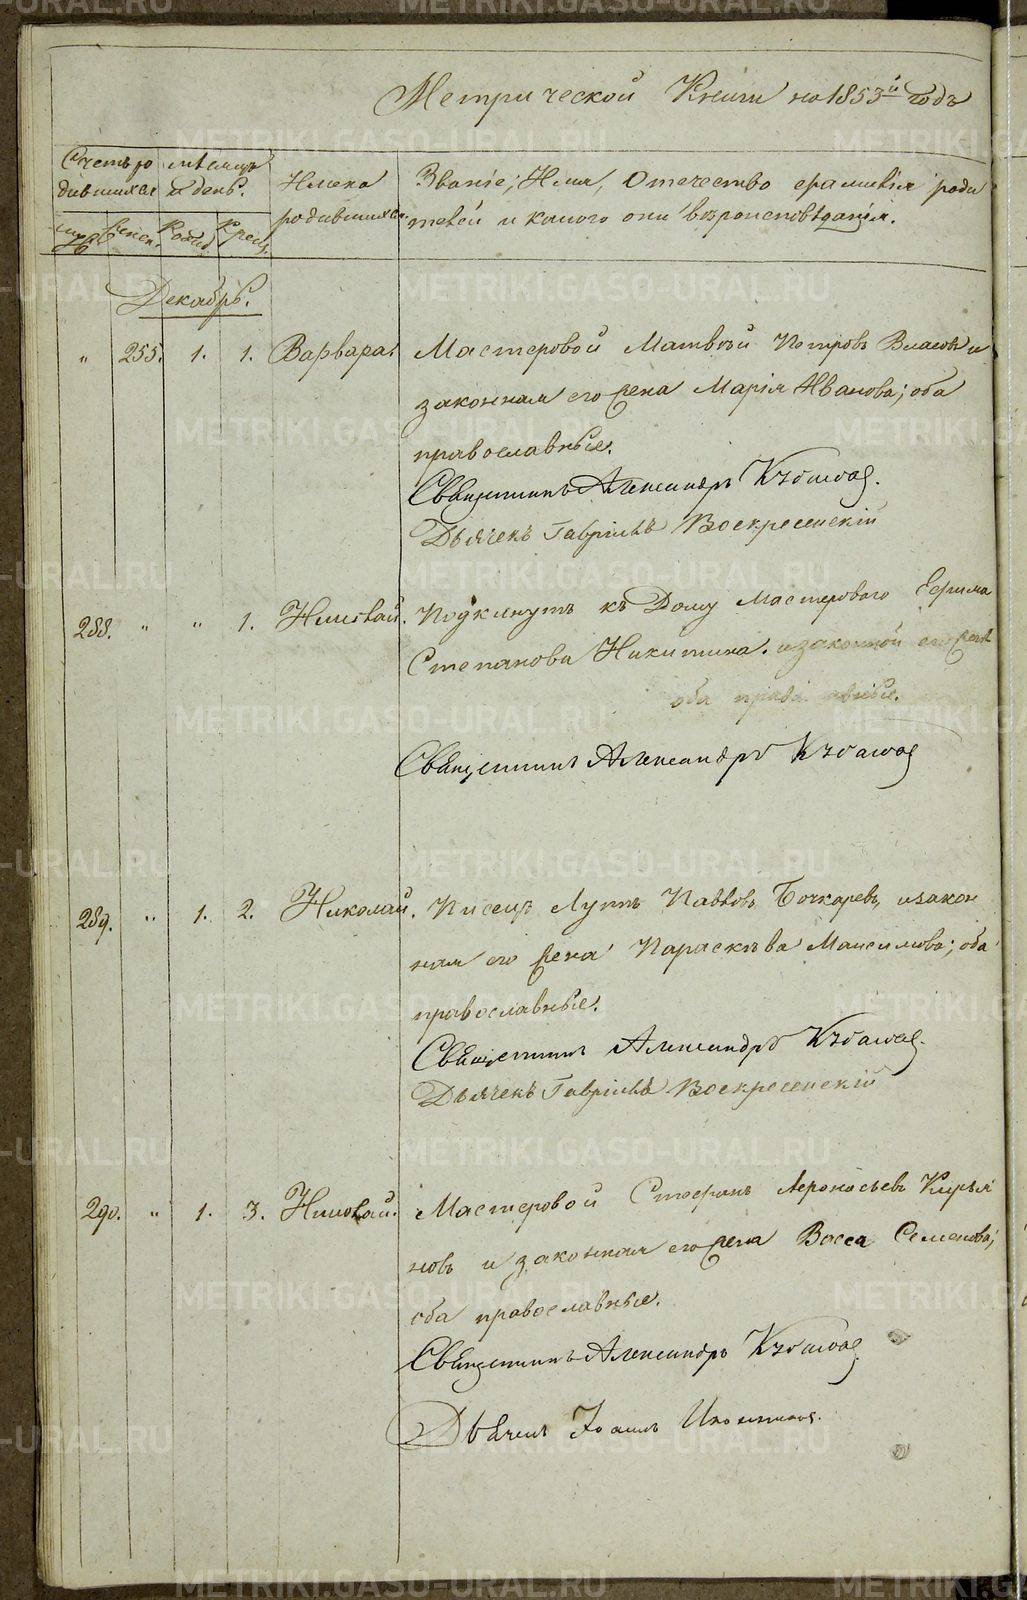 Метрической Книги на 1853й годъ
Счетъ ро
дившихся
мѣсяцъ
и день.
Имена
родившихся.
Званіе, Имя, Отечество и фамилія роди
телей и какого они вѣроисповѣданія.
муж. женск. Рожд. Крещ.
Декабрь.
" 255. 1. 1. Варвара. Мастеровой Матвѣй Петровъ Власовъ и
законная его жена Марія Иванова; оба
православные.
Священникъ Александръ
Дьячекъ Гавріилъ Воскресенскій
288. " " 1. Николай. Подкинутъ къ Дому Мастерового Ефима
Степанова Никитина. и законной его жены
оба православные.
Священникъ Александръ
289. " 1. 2. Николай. Писецъ Луппъ Павловъ Бочкаревъ, и закон
ная его жена Параскева Максимова; оба
православные.
Священникъ Александръ
Дьячекъ Гавріилъ Воскресенскій
290. " 1. 3. Николай. Мастеровой Стефанъ Афонасьевъ Кирья
новъ и законная его жена Васса Семенова;
оба православные.
Священникъ Александръ
Дьячекъ Іоаннъ
METRIKI.GASO-URAL.RU